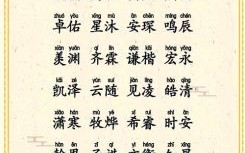 zhuó yòu xīng mù ān chēn míng chén
卓佑 星沐 安琛 鸣辰
qí lín qiān kǎi hóng yǒng
美渊 齐霖 谦楷 宏永
kǎi zé yún suí jiàn líng hào qīng
凯泽 云随 见凌 皓清
xiāo hán mù yè xī ruì shí ān
潇寒 牧烨 希睿 时安